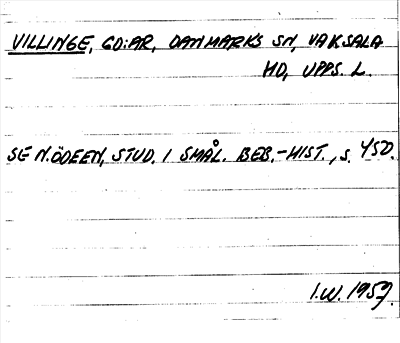 VILLINGE, GD:AR, DANMARKS SN, VAKSALA
HD, UPPS. L.
SE N. ÖDEEN, STUD. I SMÅL. BEB.-HIST., S. 450.
I.W. 1959.